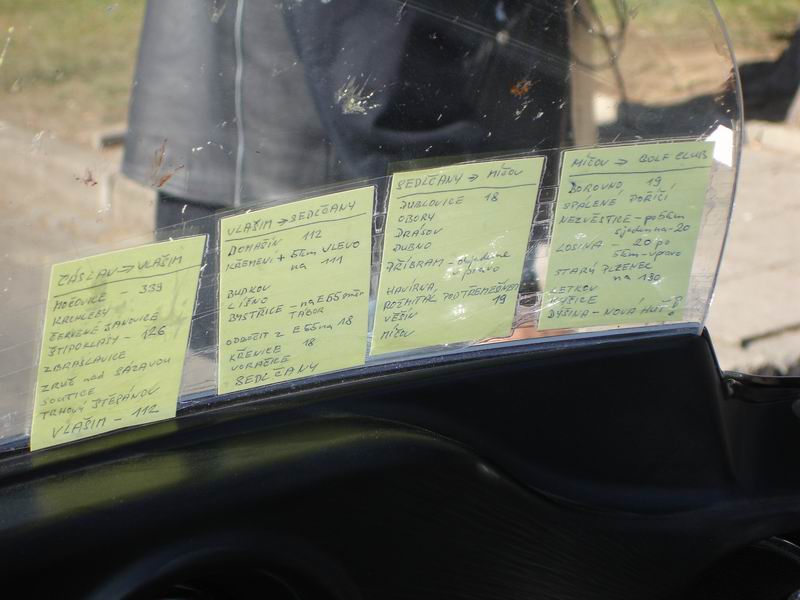 ČÁSLAV → VLAŠIM
MOČOVICE - 339
KRCHLEBY
ČERVENÉ JANOVICE
ŠTIPOKLASY - 126
ZBRASLAVICE
ZRUČ nad SÁZAVOU
SOUTICE
TRHOVÝ ŠTĚPÁNOV
VLAŠIM - 112
VLAŠIM → SEDLČANY
DOMAŠÍN 112
KŘEMENÍ + 5km VLEVO
na 111
BUDKOV
LÍŠNO
BYSTŘICE - na E55 směr
TÁBOR
ODBOČIT z E55 na 18
KŘENICE 18
VORAČICE
SEDLČANY
SEDLČANY → MÍČOV
DUBLOVICE 18
OBORY
DRÁSOV
DUBNO
PŘÍBRAM - objedeme
vpravo
HAVÍRNA
ROŽMITÁL POD TŘEMEŠNEM
19
VĚŠÍN
MÍČOV
MÍČOV → GOLF CLUB
BOROVNO 19
SPÁLENÉ POŘÍČÍ
NEZVĚSTICE - po 5km
sjedem na - 20
LOSINA - 20 po
5km - vpravo
STARÝ PLZENEC
na 180
LETKOV
KYŠICE
DÝŠINA - NOVÁ HUŤ